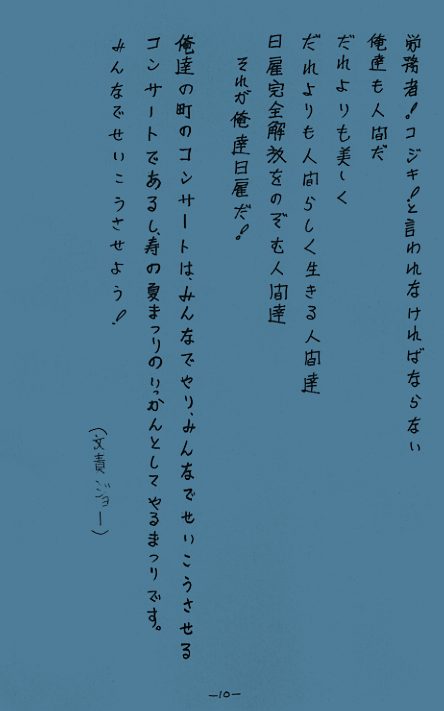 労務者!コジキ!と言われなければならない
俺達も人間だ
だれよりも美しく
だれよりも人間らしく生きる人間達
日雇完全解放をのぞむ人間達
それが俺達日雇だ!
俺達の町のコンサートは、みんなでやり、みんなでせいこうさせる
コンサートであるし、寿の夏まつりのいっかんとしてやるまつりです。
みんなでせいこうさせよう!
(文責 ジョー)
—10—